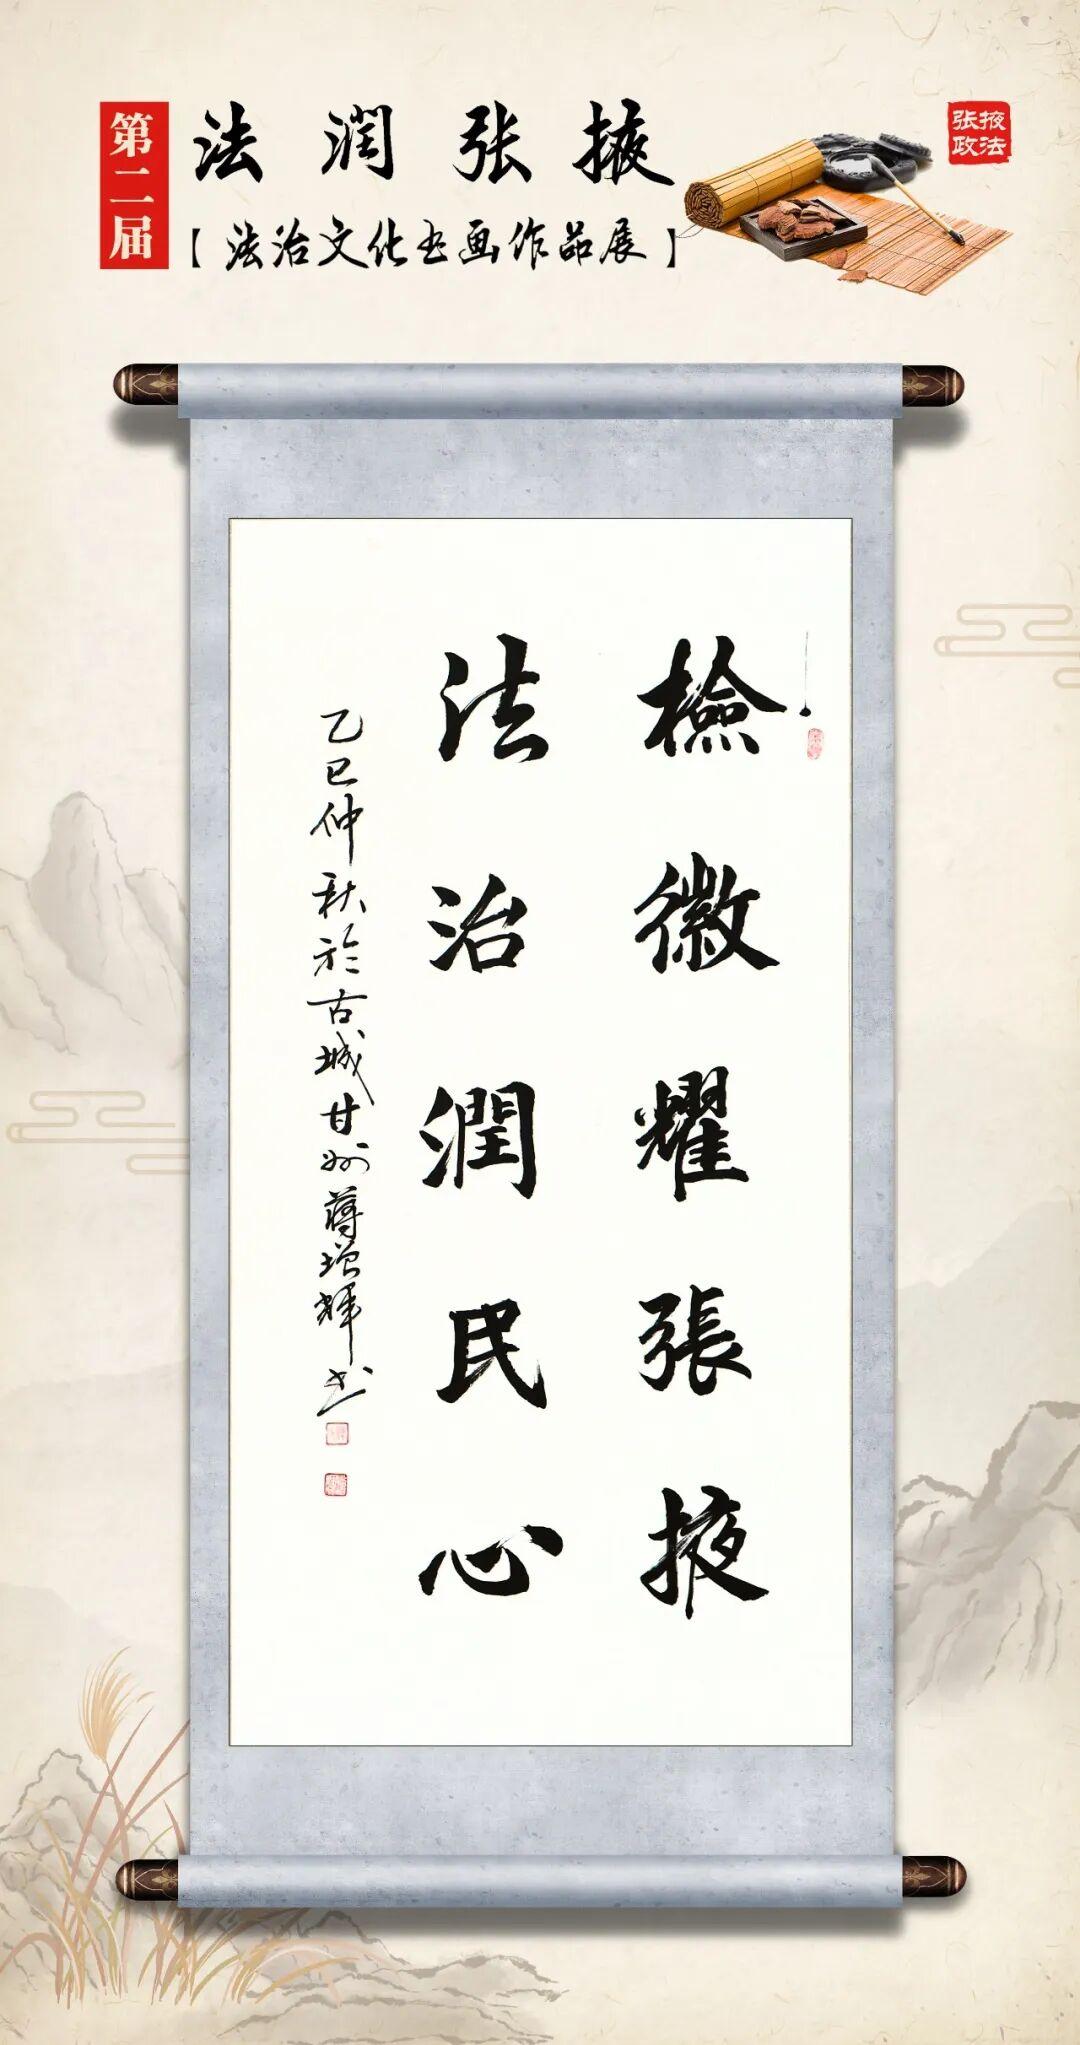 第二届
法润张掖
【法治文化书画作品展】
张掖
政法
檢徽耀張掖
法治潤民心
乙巳仲秋於古城甘州蔣增輝书